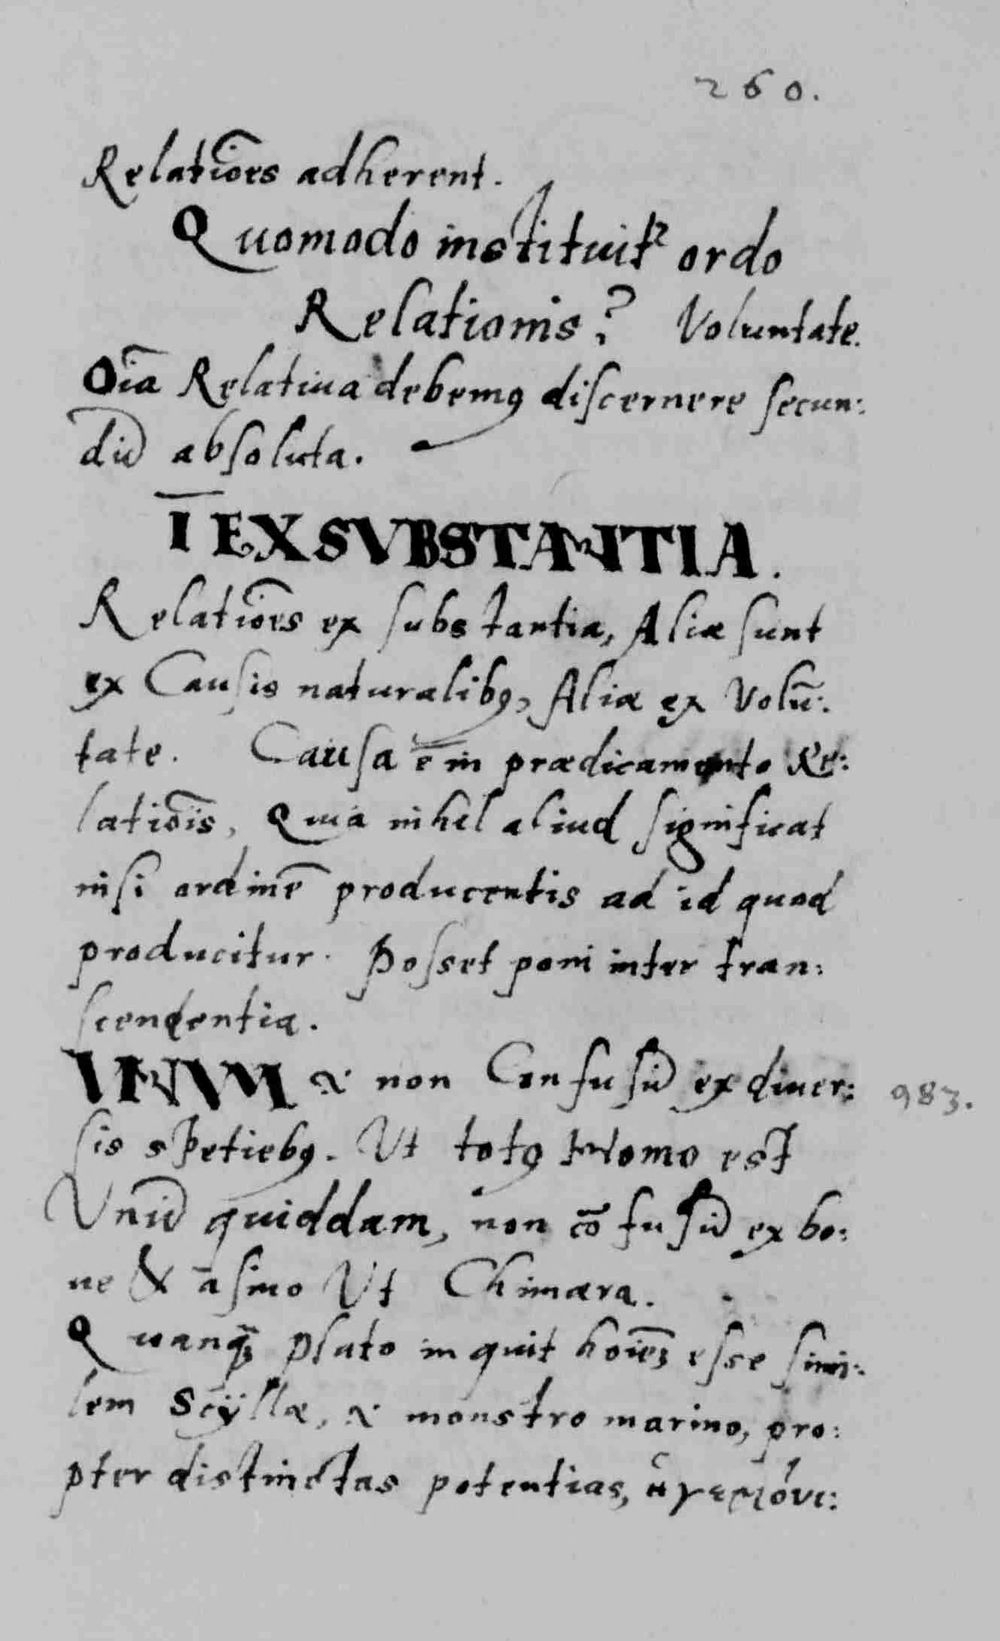 260.
Relatiōes adherent.
Quomodo instituitr ordo
Relationis? Voluntate.
Oīa Relatiua debemꝰ discernere secun:
dū absoluta.
Ī EX SVBSTANTIA.
Relatiōes ex substantia, Aliæ sunt
ex Causis naturalibꝰ, Aliæ ex Volū:
tate. Causa ē in prædicamento Re:
latiōis, Quia nihel aliud significat
nisi ordinē producentis ad id quod
producitur. Posset poni inter tran:
scendentia.
VNVM & non Confusū ex diuer: 983.
sis spetiebꝰ. Ut totꝰ Homo est
Unū quiddam, non cōfusū ex bo:
ue & asino Ut Chimæra.
Quanqꝫ Plato inquit hoīeꝫ esse simi:
lem Scÿllæ, & monstro marino, pro:
pter distinctas potentias, ἡγεμόνι: